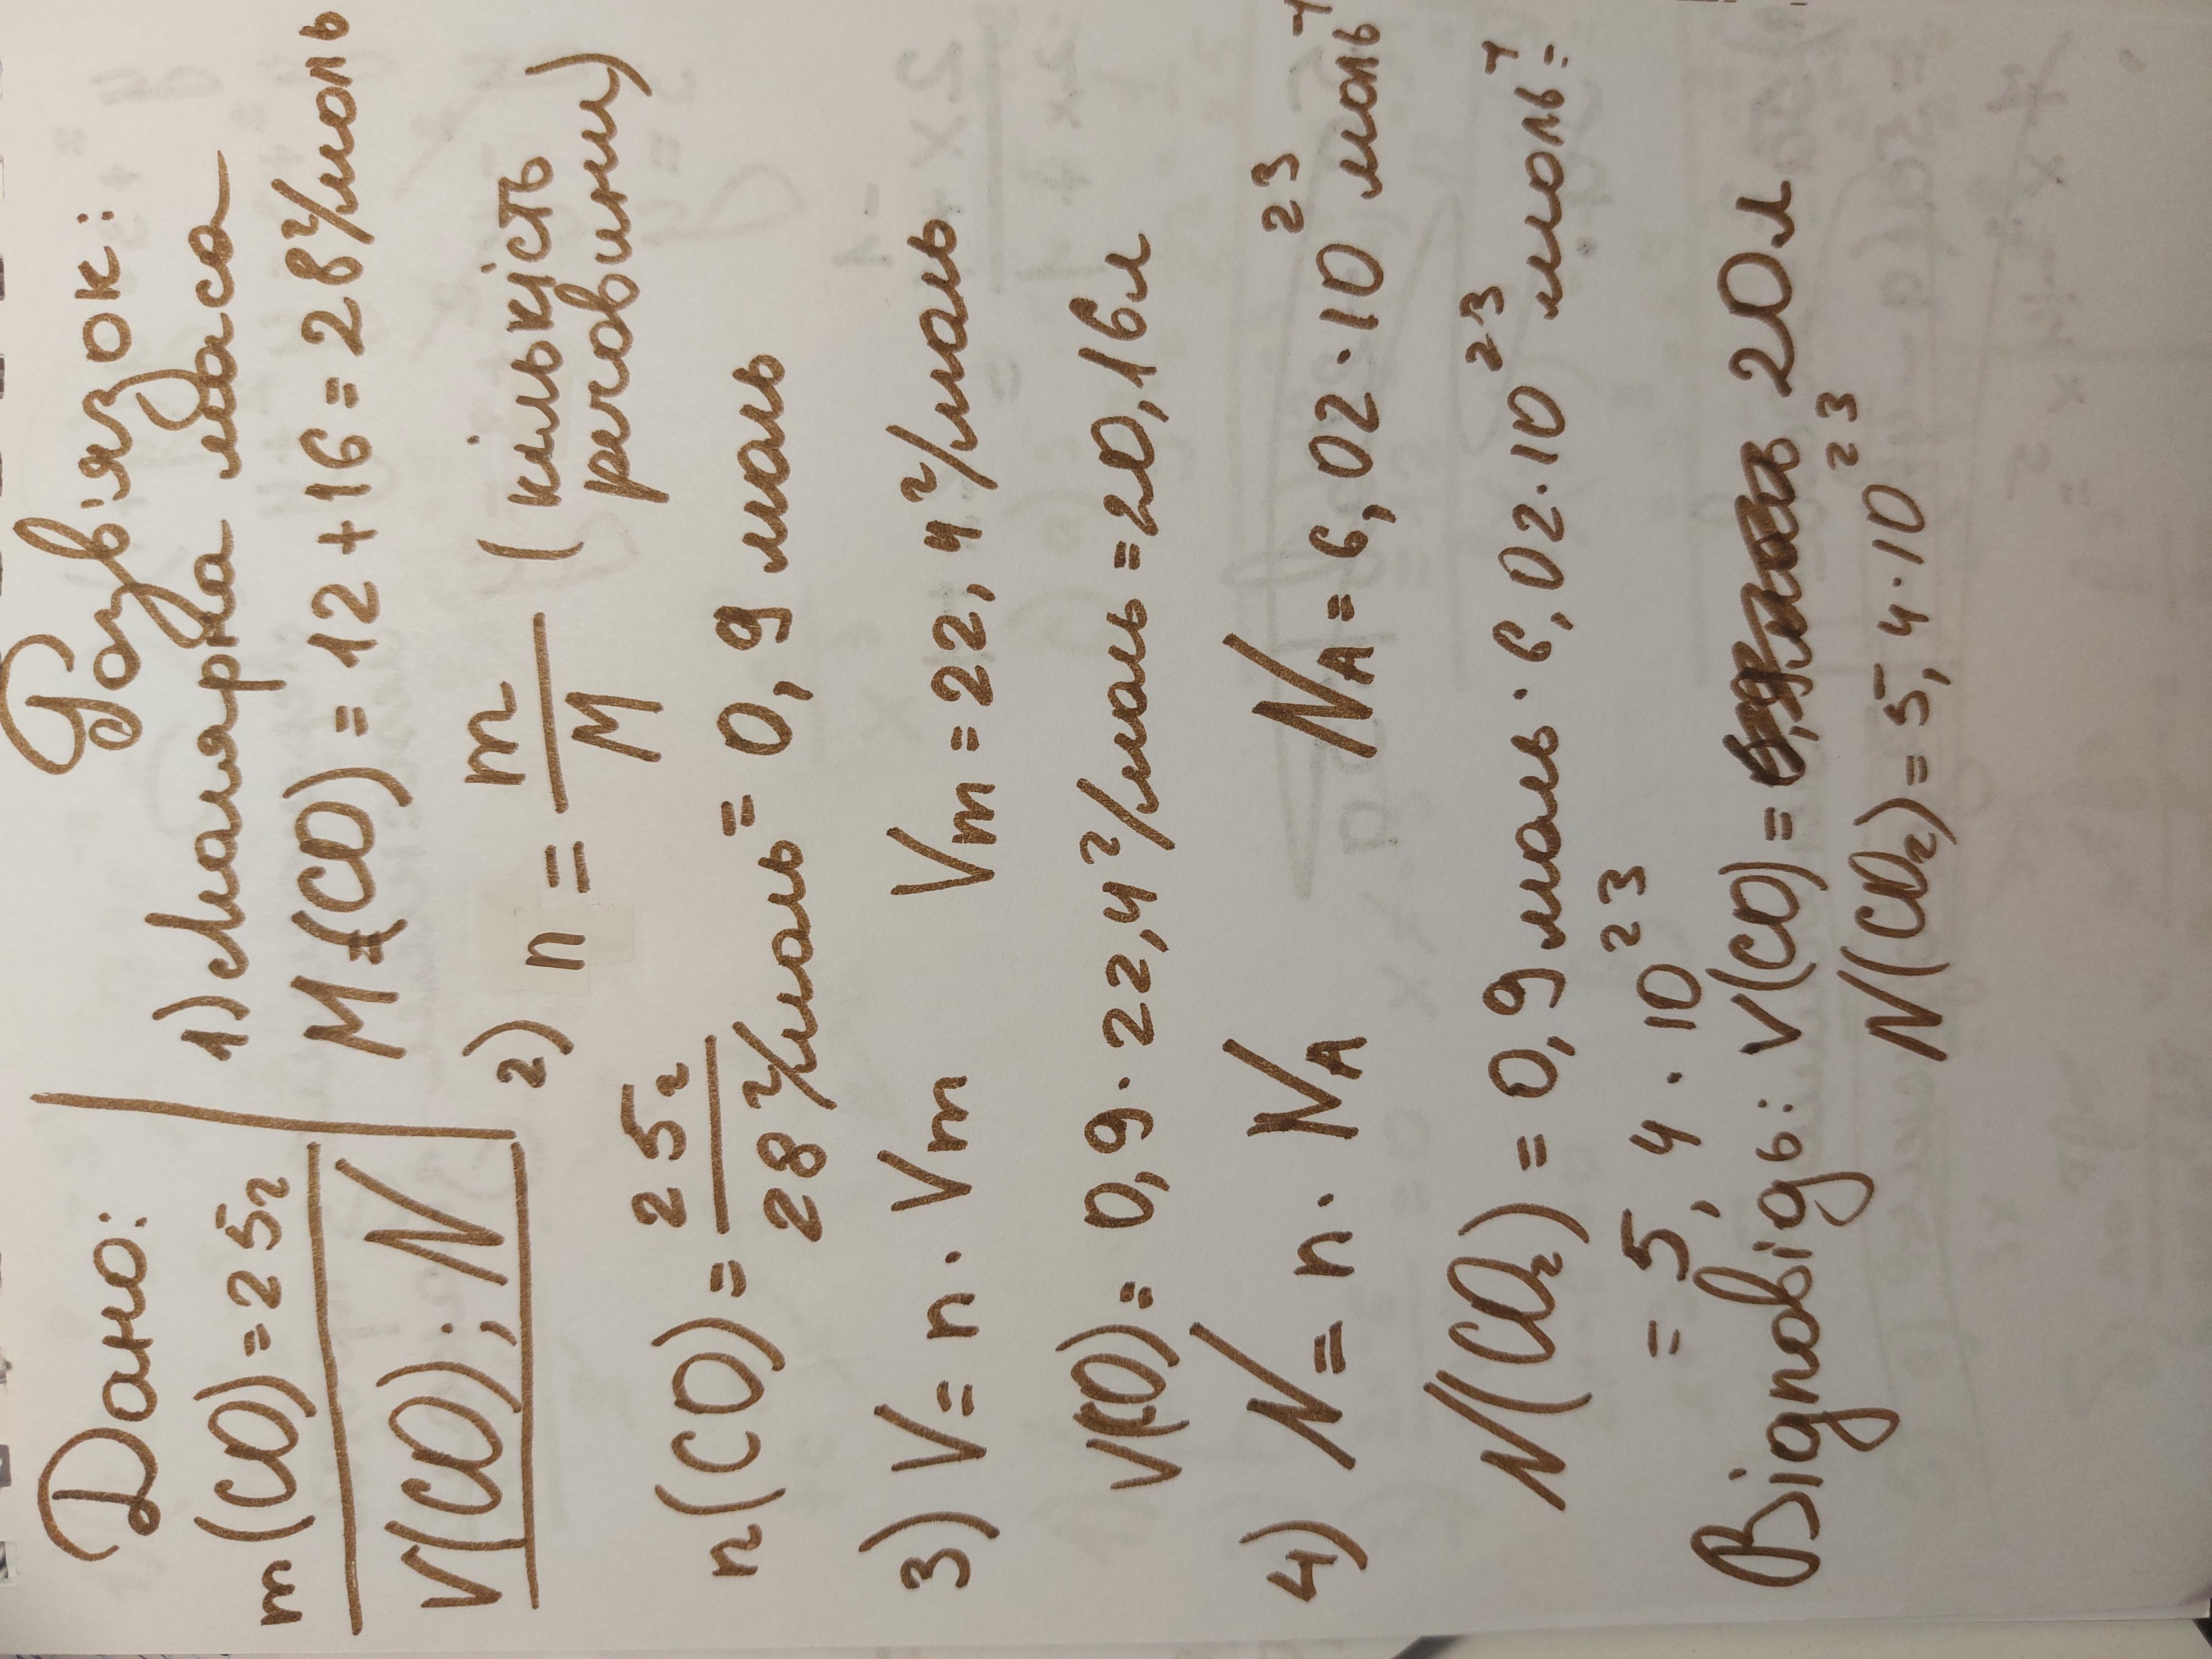 Дано:
m(CO)=25г
V(CO); N
Розв'язок:
1) Молярна маса
M=(CO)=12+16=28г/моль
2) n = m/M (кількість
речовини)
n(CO) = 25г/28г/моль = 0,9 моль
3) V= n · Vm Vm=22,4г/моль
V(CO)= 0,9·22,4г/моль=20,16л
4) N= n· NA NA=6,02·10²³моль⁻¹
N(CO₂)=0,9моль·6,02·10²³моль⁻¹=
= 5,4·10²³
Відповідь: V(CO)= 20л
N(CO₂)=5,4·10²³